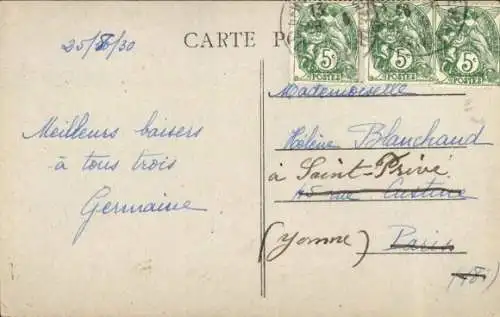 25/8/30
CARTE PO
5c 5c 5c
POSTES POSTES POSTES
Meilleurs baisers
à tous trois
Germaine
Mademoiselle
Hélène Blanchard
à Saint-Privé
45 rue Custine
(Yonne) Paris
(18e)